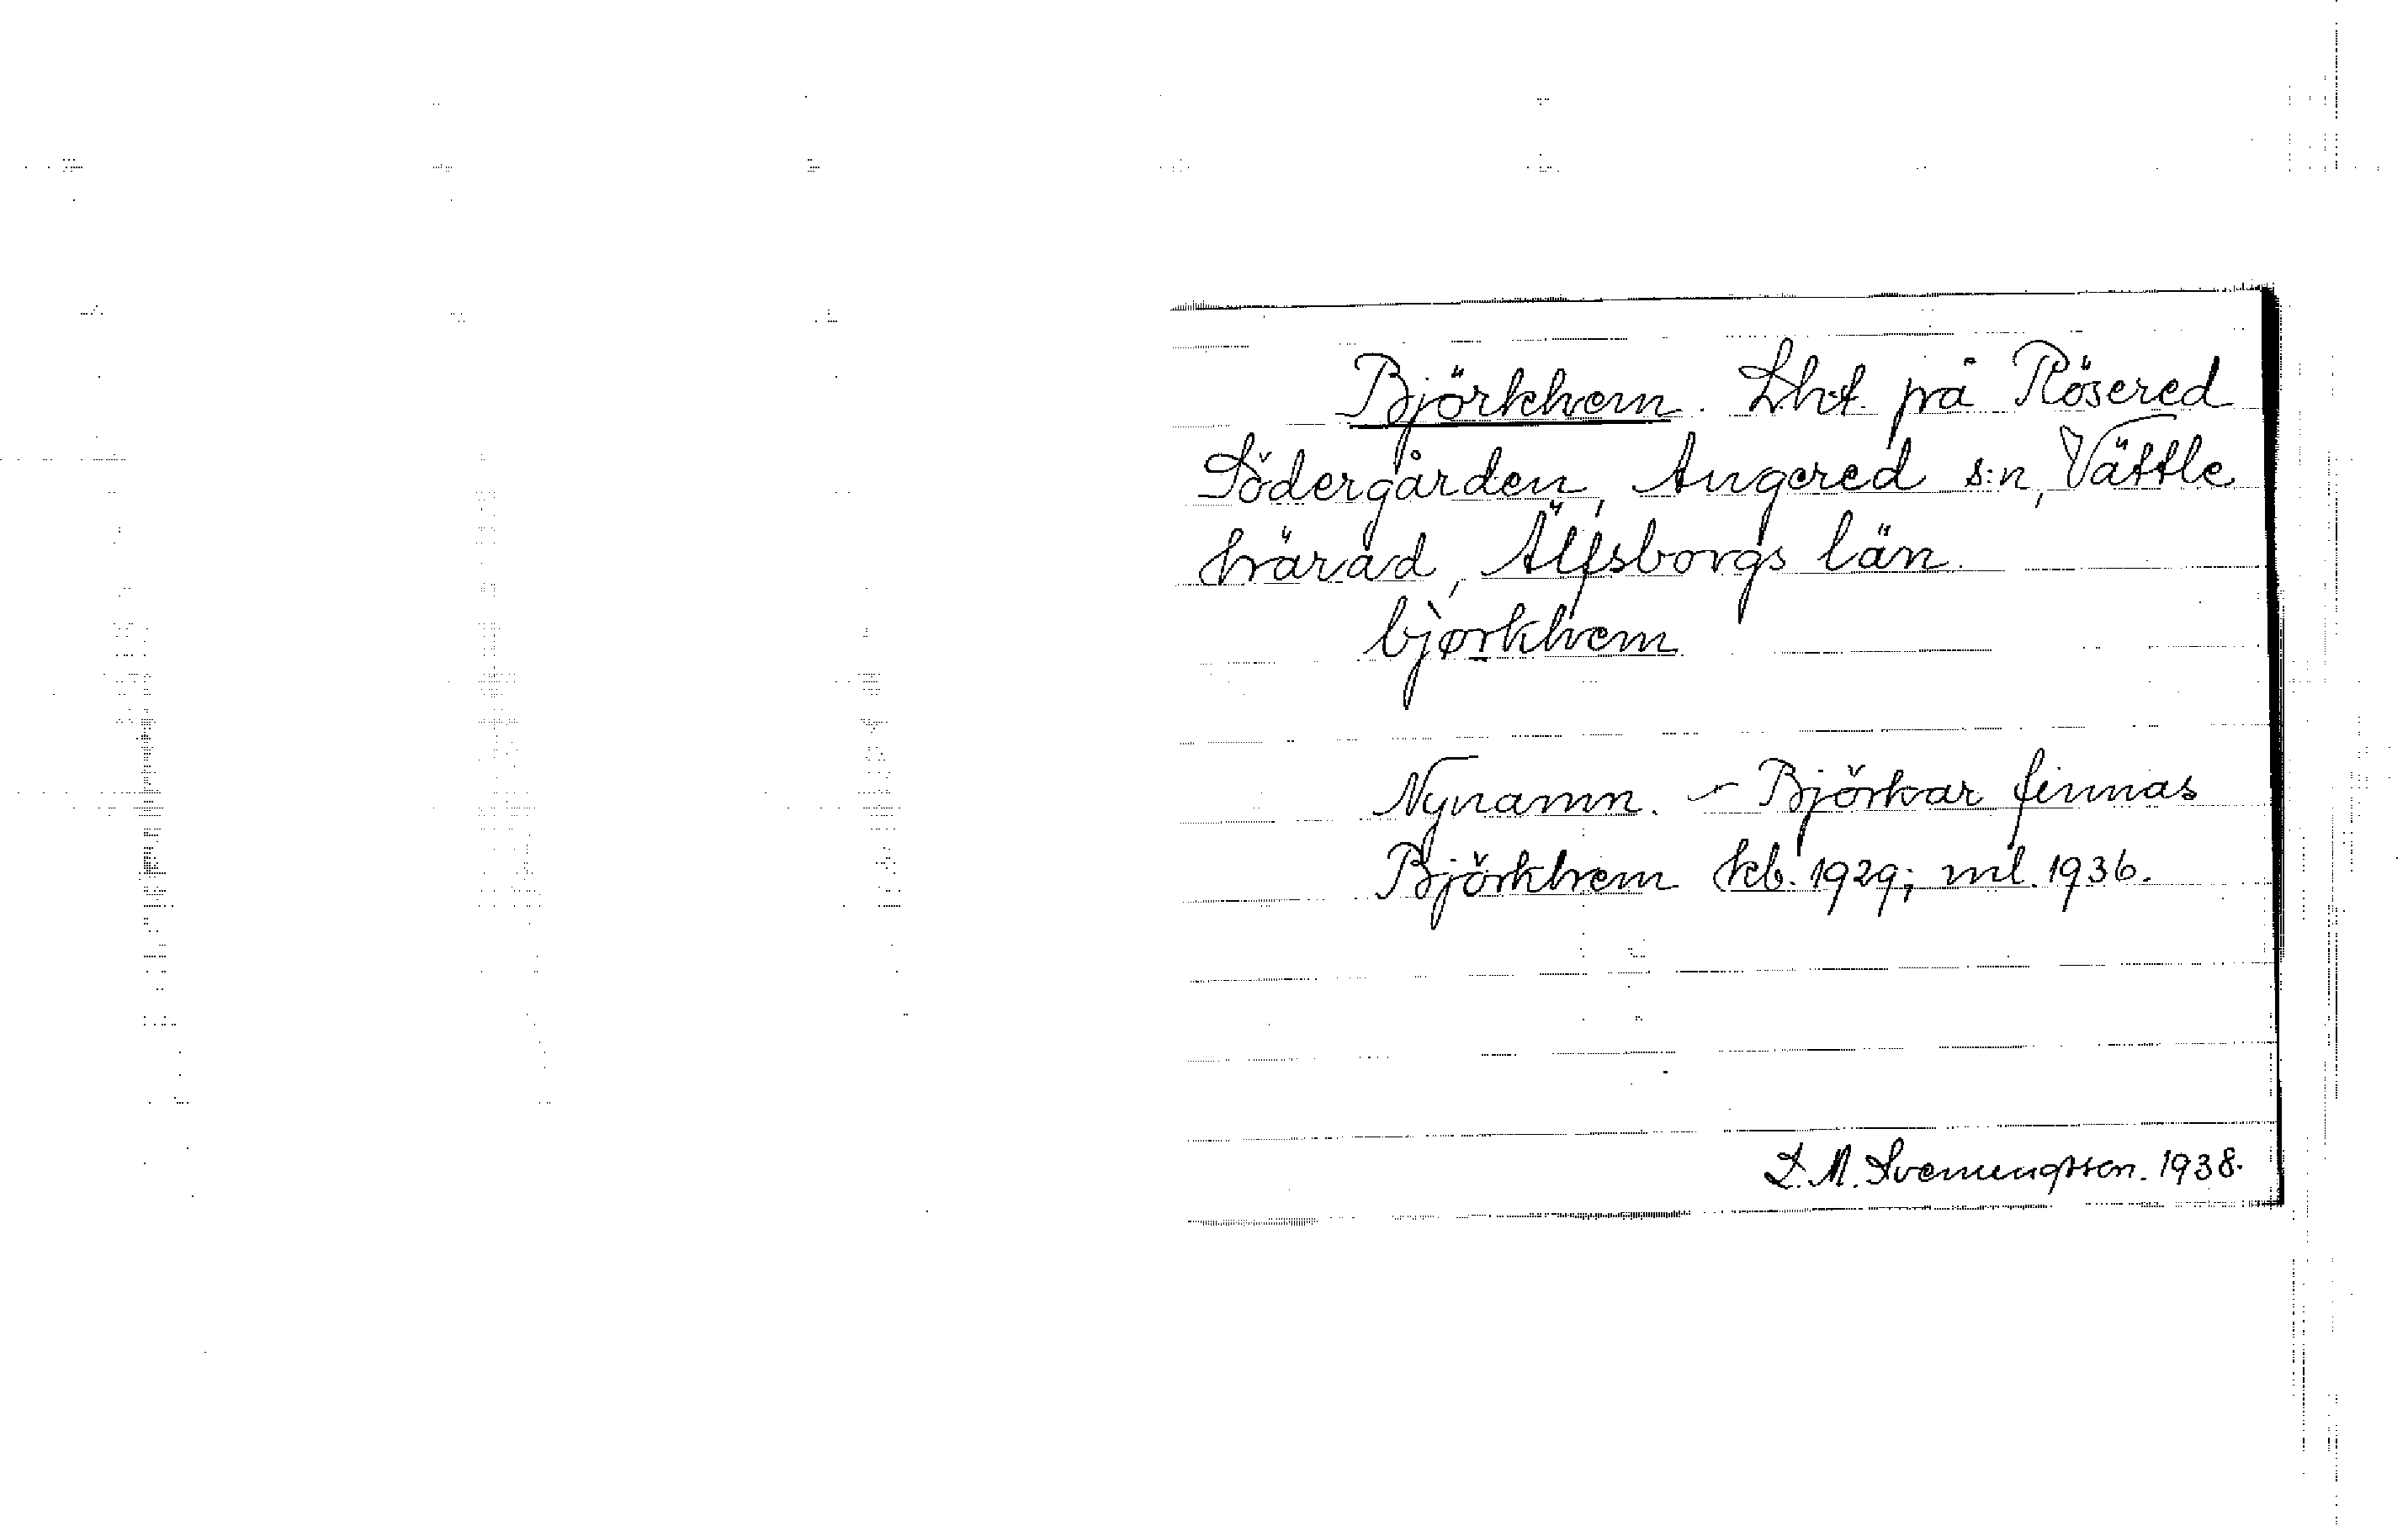 Björkhem. Lht. på Rösered
Södergården, Angered s:n, Vättle
härad, Älfsborgs län.
bjørkhem
Nynamn. – Björkar finnas
Björkhem kb. 1929; ml. 1936.
L. M. Svenungsson. 1938.